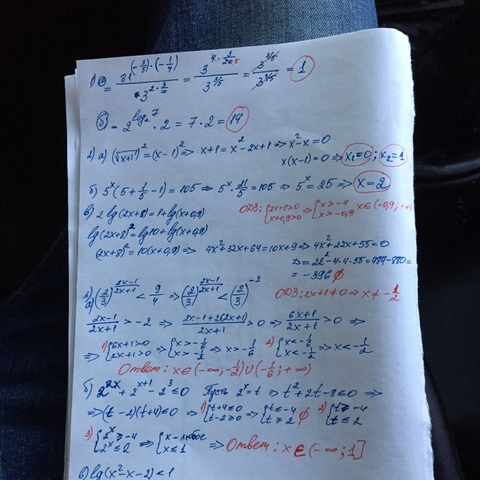 = 3^(4·3/20) / 3^(3/5) = 3^(3/5) / 3^(3/5) = 1
б) = 2^log₂7 · 2 = 7·2 = 14
2) а) (√x+1)² = (x-1)² ⇒ x+1 = x²-2x+1 ⇒ x²-x=0
x(x-1)=0 ⇒ x₁=0; x₂=1
б) 5^x(5+1/5-1)=105 ⇒ 5^x·21/5=105 ⇒ 5^x=25 ⇒ x=2
в) 2 lg(2x+8)=1+lg(x+0,9) ОДЗ: {2x+8>0 x+0,9>0 ⇒ {x>-4 x>-0,9
lg(2x+8)²=lg10+lg(x+0,9)
(2x+8)²=10(x+0,9) ⇒ 4x²+32x+64=10x+9 ⇒ 4x²+22x+55=0
D=22²-4·4·55=484-880=
=-396 ∅
а) (2/3)^((2x-1)/(2x+1)) < 9/4 ⇒ (2/3)^((2x-1)/(2x+1)) < (2/3)^-2 ОДЗ: 2x+1≠0 ⇒ x≠-1/2
(2x-1)/(2x+1) > -2 ⇒ (2x-1+2(2x+1))/(2x+1) > 0 ⇒ (6x+1)/(2x+1) > 0 ⇒
1) {6x+1>0 2x+1>0 ⇒ {x>-1/6 x>-1/2 ⇒ x>-1/6 2) {x<-1/6 x<-1/2 ⇒ x<-1/2
Ответ: x∈(-∞;-1/2)∪(-1/6;+∞)
б) 2^2x+2^(x+1)-2³≤0 Пусть 2^x=t ⇒ t²+2t-8≤0 ⇒
⇒(t-2)(t+4)≤0 ⇒ 1) {t+4≤0 t-2≥0 ⇒ {t≤-4 t≥2 ∅ 2) {t≥-4 t≤2
3) {2^x≥-4 2^x≤2 ⇒ {x-любое x≤1 ⇒ Ответ: x∈(-∞;1]
в) lg(x²-x-2)<1